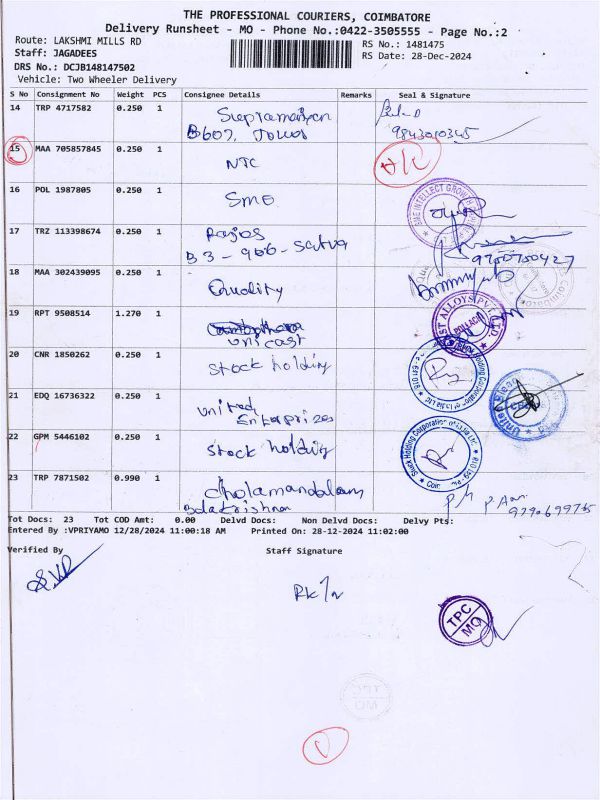 THE PROFESSIONAL COURIERS, COIMBATORE
Delivery Runsheet - MO - Phone No.:0422-3505555 - Page No.:2
Route: LAKSHMI MILLS RD
RS No.: 1481475
Staff: JAGADEES
RS Date: 28-Dec-2024
DRS No.: DCJB148147502
Vehicle: Two Wheeler Delivery
S No Consignment No Weight PCS Consignee Details Remarks Seal & Signature
14 TRP 4717582 0.250 1
B602,
9843010345
15 MAA 705857845 0.250 1 NTC
16 POL 1987805 0.250 1 SME
17 TRZ 113398674 0.250 1
B3-906-
9750750427
18 MAA 302439095 0.250 1 Quality
19 RPT 9508514 1.270 1
Unicast
20 CNR 1850262 0.250 1 Stock holding
21 EDQ 16736322 0.250 1 United
Enterprizes
22 GPM 5446102 0.250 1 Stock holding
Stock Holding Corporation of India Ltd.
23 TRP 7871502 0.990 1 Cholamandalam
Balakrishnan
Tot Docs: 23 Tot COD Amt: 0.00 Delvd Docs: Non Delvd Docs: Delvy Pts:
Entered By :VPRIYAMO 12/28/2024 11:00:18 AM Printed On: 28-12-2024 11:02:00
Verified By Staff Signature
TPC
MO